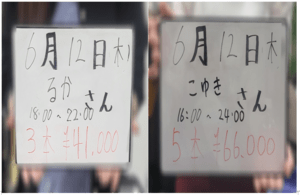 6月12日(木)
るか さん
18:00~22:00
3本 ¥41,000
6月12日(木)
こゆき さん
16:00~24:00
5本 ¥66,000